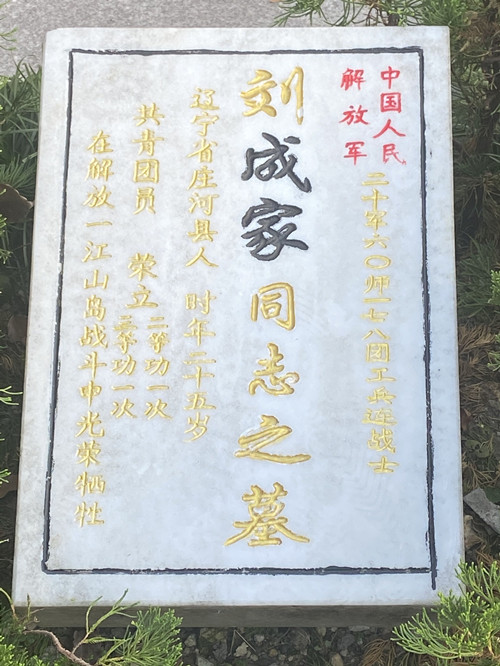 中国人民
解放军
二十军六〇师一七八团工兵连战士
刘成家同志之墓
辽宁省庄河县人 时年二十五岁
共青团员 荣立
二等功一次
三等功一次
在解放一江山岛战斗中光荣牺牲